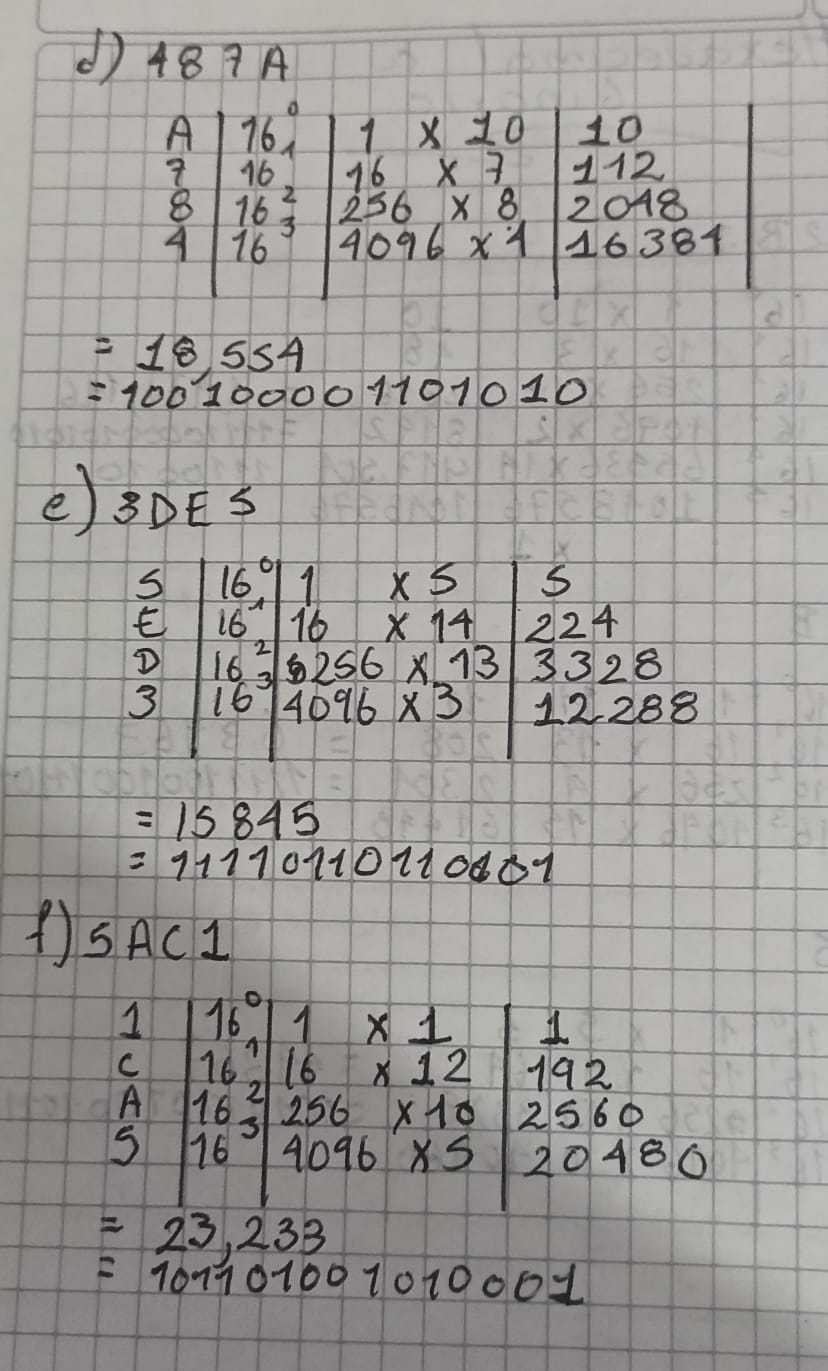 d) 487A
A | 16⁰ | 1 x 10 | 10
7 | 16¹ | 16 x 7 | 112
8 | 16² | 256 x 8 | 2048
4 | 16³ | 4096 x 4 | 16384
= 18,554
= 100100001101010
e) 3DE5
5 | 16⁰ | 1 x 5 | 5
E | 16¹ | 16 x 14 | 224
D | 16² | 256 x 13 | 3328
3 | 16³ | 4096 x 3 | 12288
= 15845
= 11110110110001
f) 5AC1
1 | 16⁰ | 1 x 1 | 1
C | 16¹ | 16 x 12 | 192
A | 16² | 256 x 10 | 2560
5 | 16³ | 4096 x 5 | 20480
= 23,233
= 101101001010001